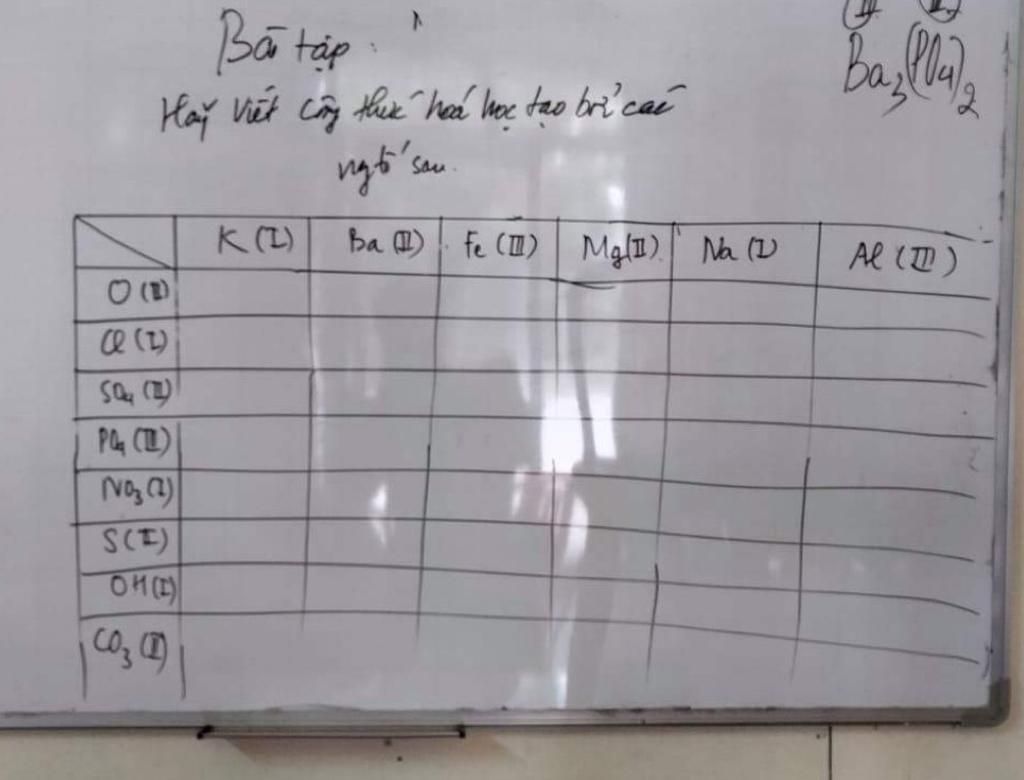 Bài tập :
Hãy viết công thức hoá học tạo bởi các
ngtố sau.
Ba₃(PO₄)₂
K (I) Ba (II) Fe (III) Mg (II) Na (I) Al (III)
O (II)
Cl (I)
SO₄ (II)
PO₄ (III)
NO₃ (I)
S (I)
OH (I)
CO₃ (II)